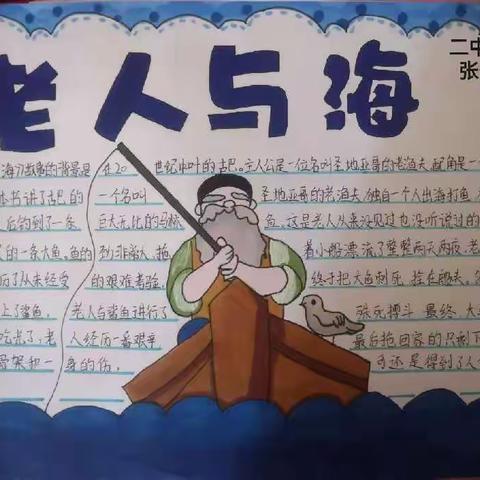 老人与海
二中
张
海》故事的背景是 在20 世纪中叶的古巴。主人公是一位名叫圣地亚哥的老渔夫,配角是一
本书讲了古巴的 一个名叫 圣地亚哥的老渔夫,独自一个人出海打鱼,
后钓到了一条 巨大无比的马林 鱼。这是老人从来没见过也没听说过的
的一条大鱼。鱼的 劲非常大,拖 着小船漂流了整整两天两夜,老
历了从未经受 的艰难考验, 终于把大鱼刺死,拴在船头。
上了鲨鱼, 老人与鲨鱼进行了 殊死搏斗 最终 大
吃光了,老 人经历一番艰辛 最后拖回家的只剩下
骨架和一 身的伤。 可还是得到了人